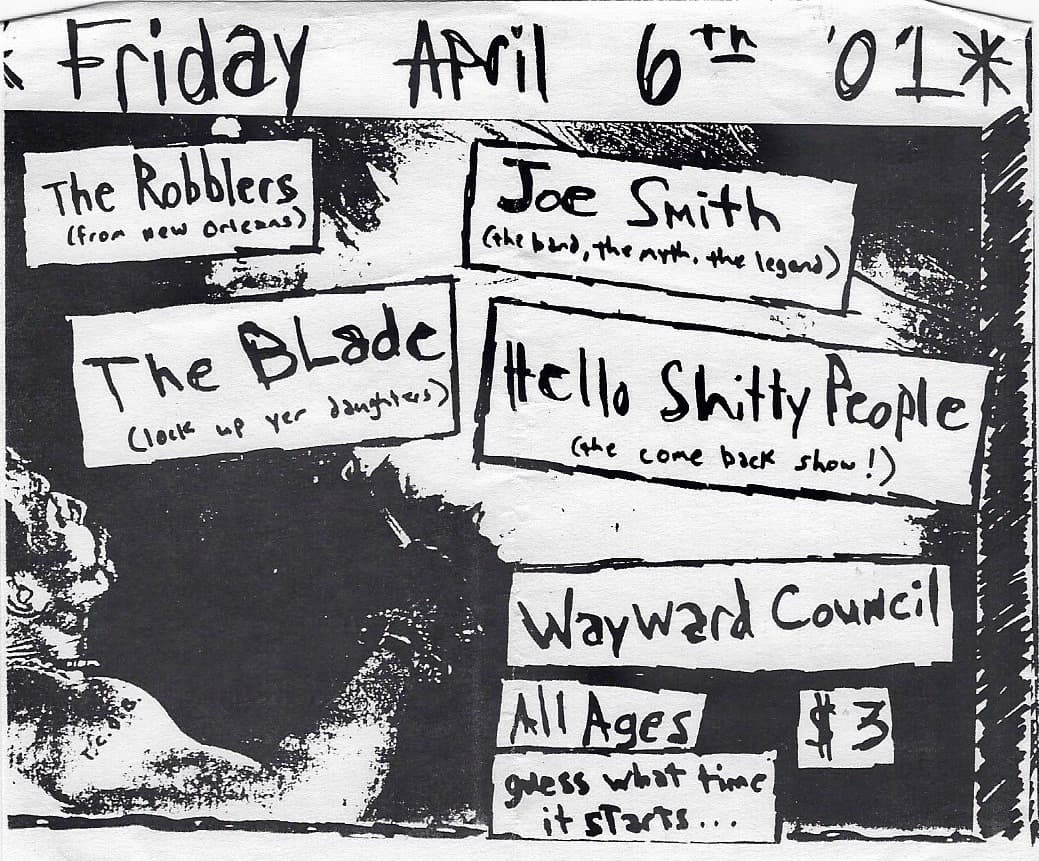 Friday April 6th '01*
The Robblers
(from new orleans)
Joe Smith
(the band, the myth, the legend)
The Blade
(lock up yer daughters)
Hello Shitty People
(the come back show!)
Wayward Council
All Ages
$3
guess what time
it starts...